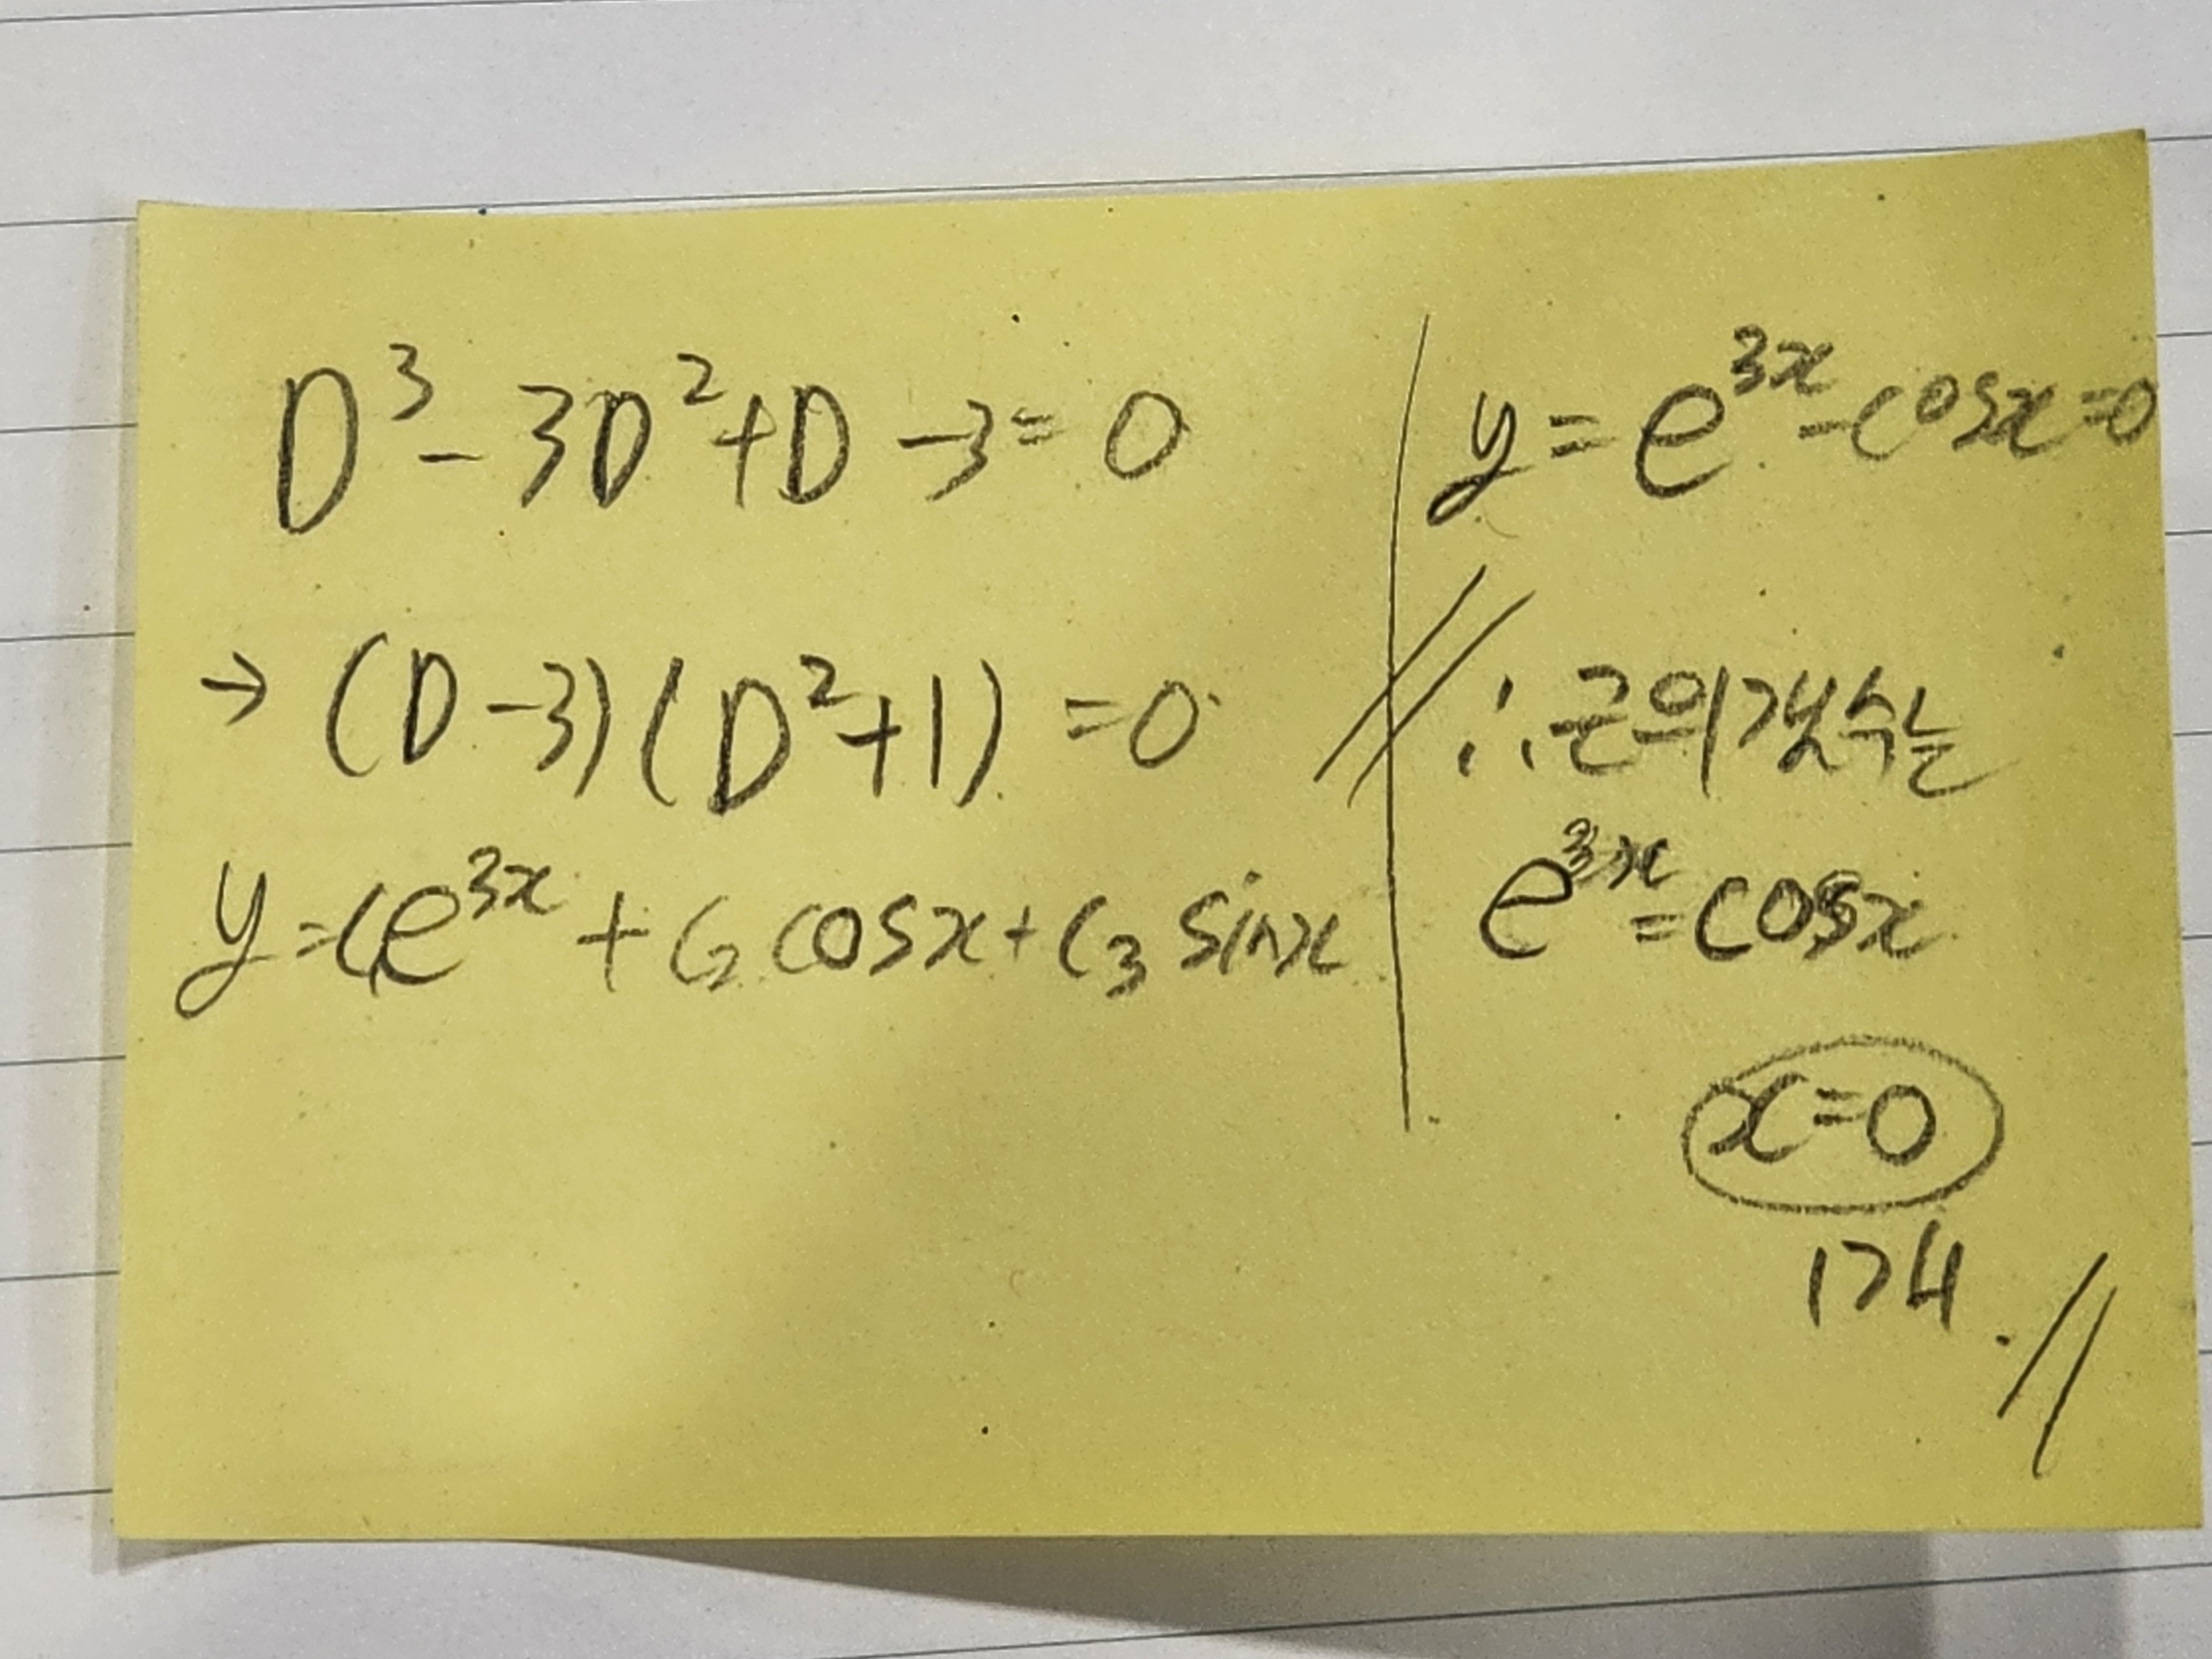 D³ - 3D² + D - 3 = 0
→ (D - 3)(D² + 1) = 0
y = C₁e³ˣ + C₂ cosx + C₃ sinx
y = e³ˣ - cosx = 0
∴ 근의 갯수는
e³ˣ = cosx
x = 0
1개.